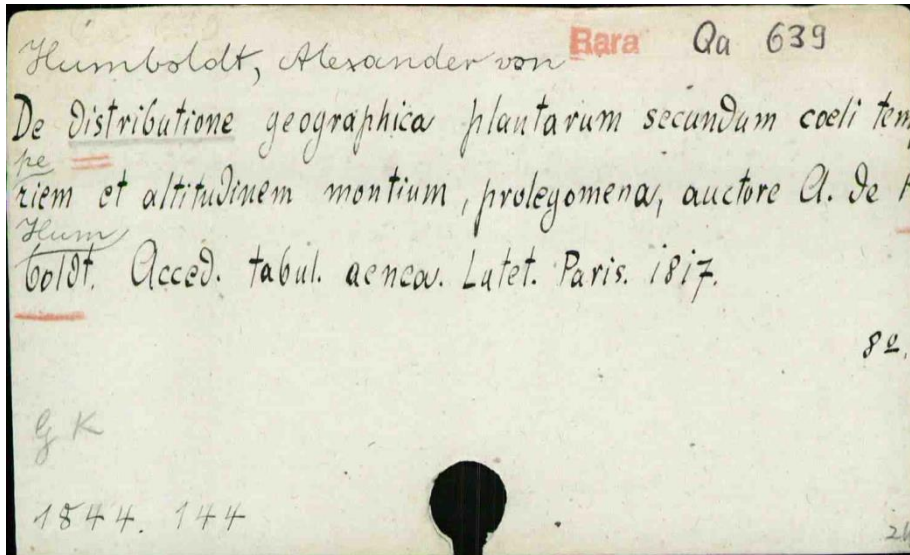 Rara Qa 639
Humboldt, Alexander von
De distributione geographica plantarum secundum coeli tem
pe
riem et altitudinem montium, prolegomena, auctore A. de
Hum
boldt. Acced. tabul. aenea. Lutet. Paris. 1817.
8º.
G K
1844. 144